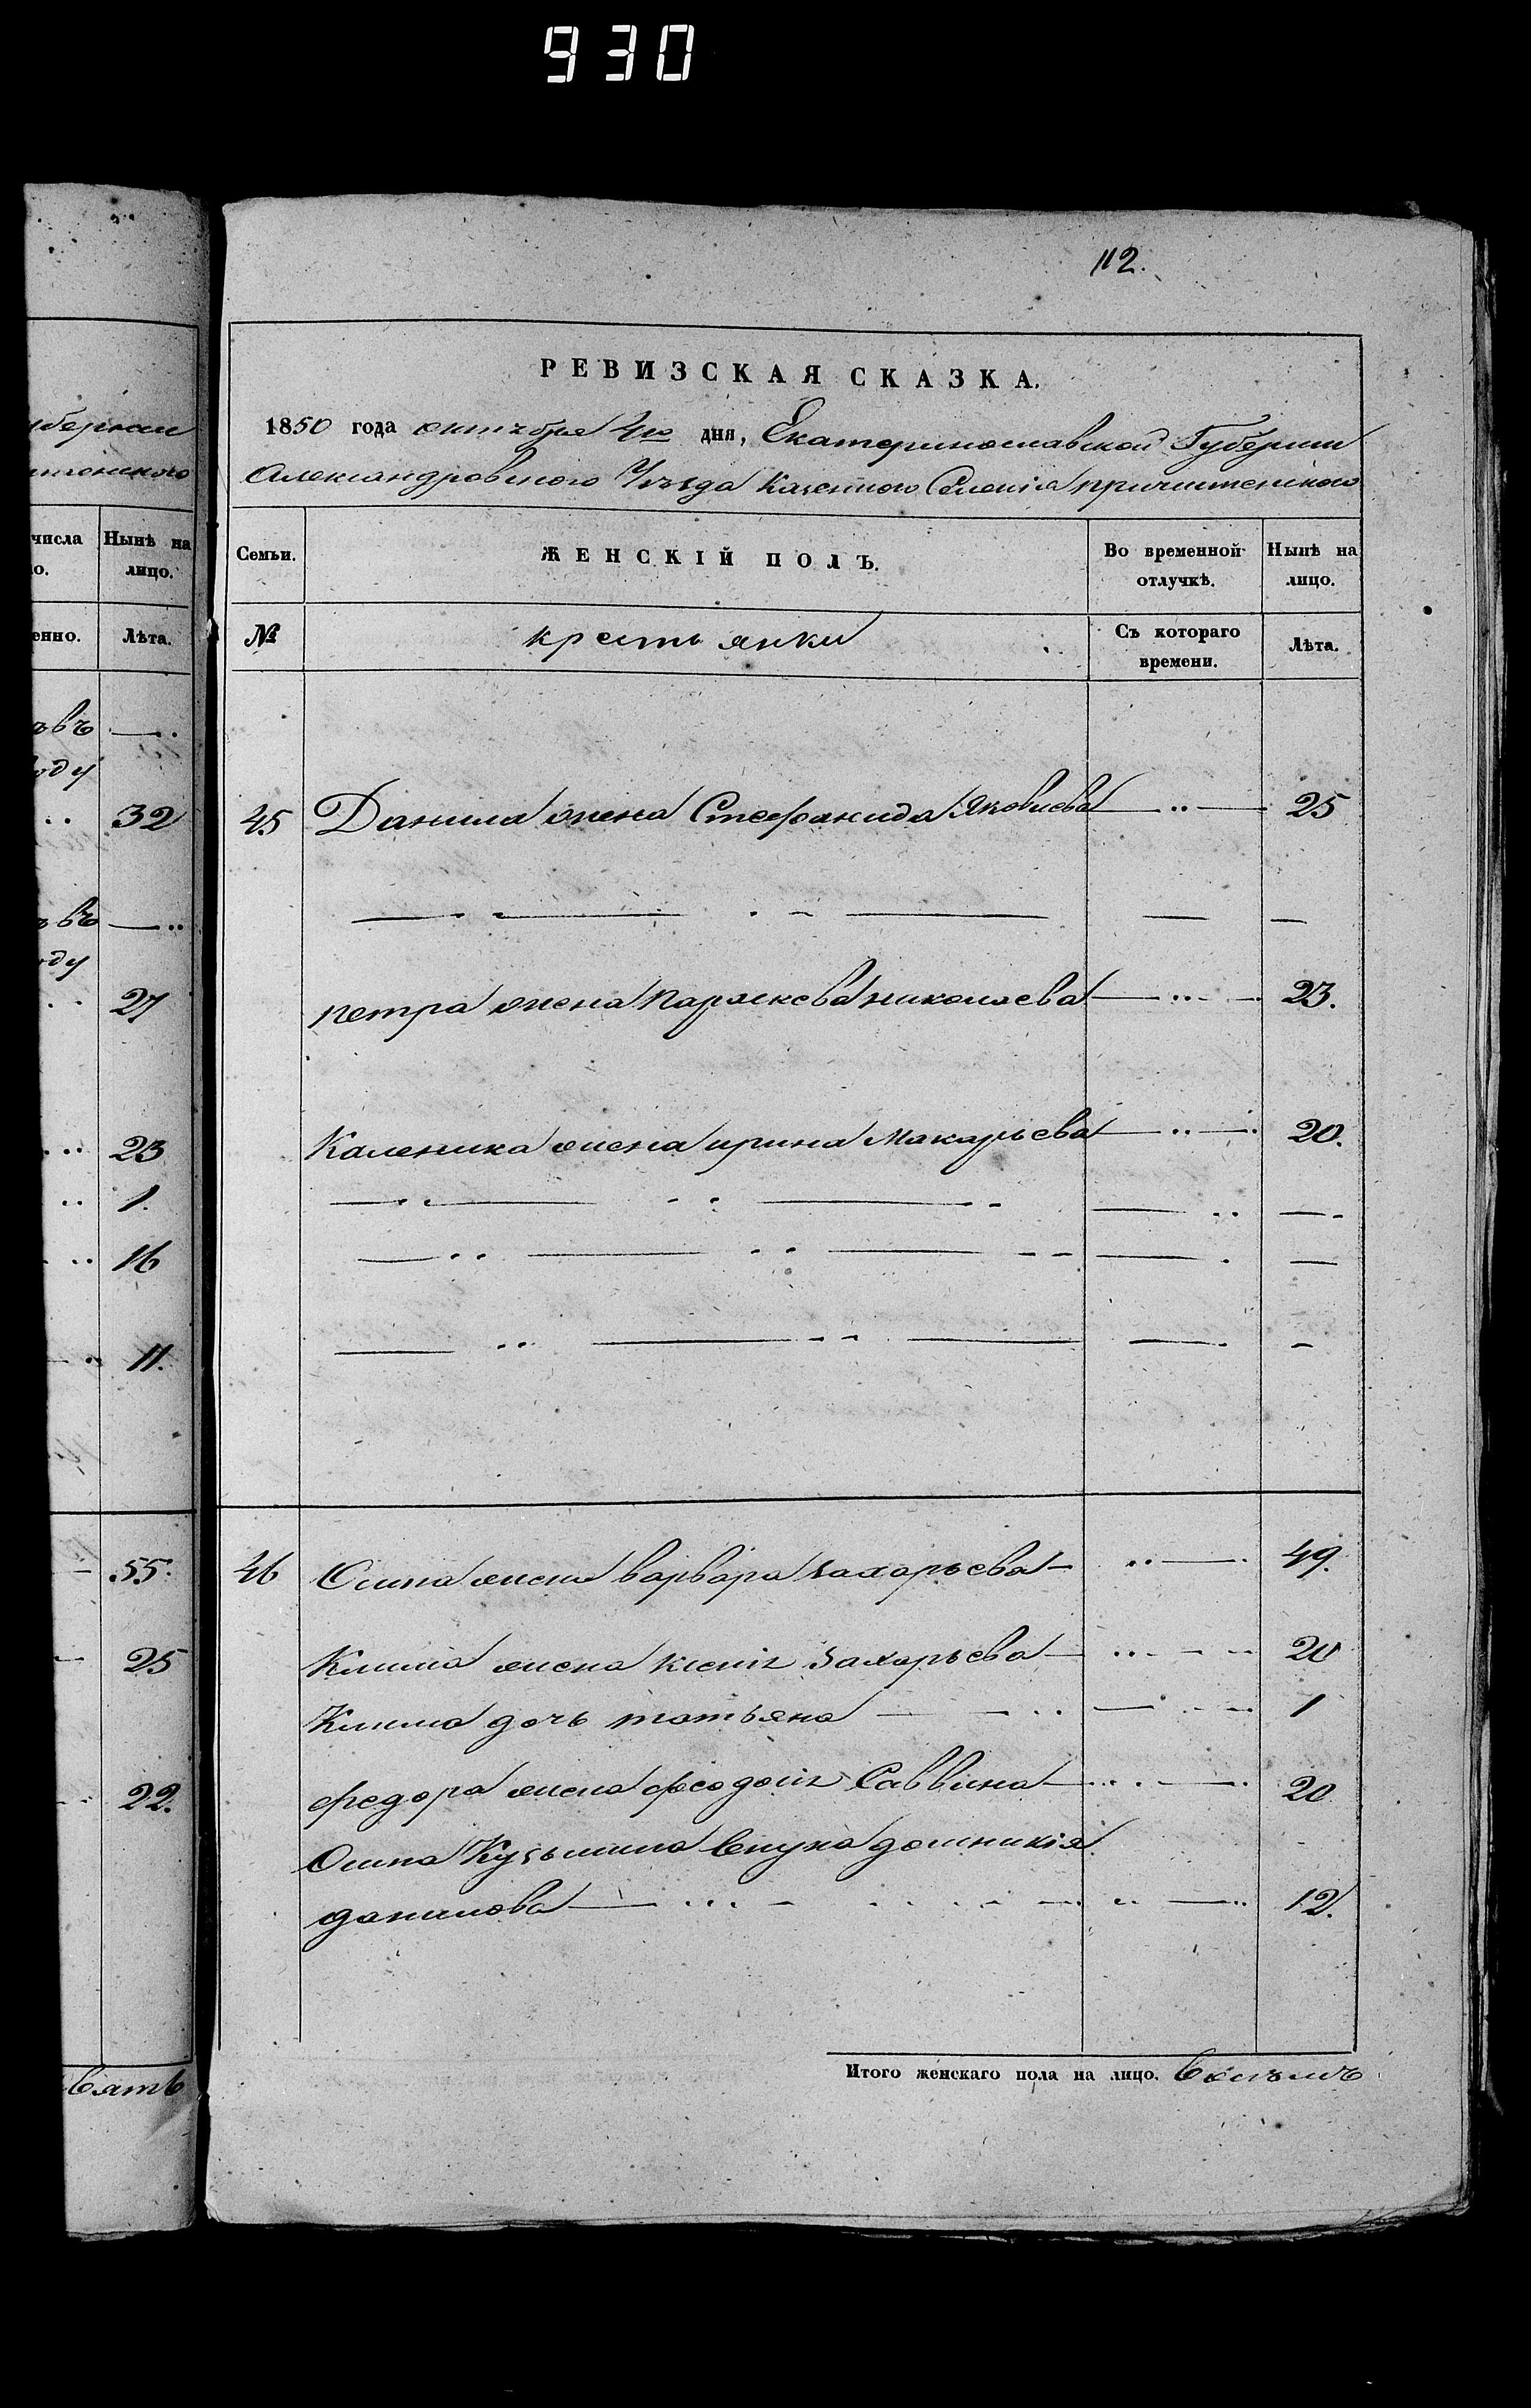 930
112.
уберніи
числа Нынѣ на
о. лицо.
енно. Лѣта.
въ —..
оду
.. 32
въ —..
оду
.. 27
.. 23
.. 1.
.. 16
.. 11.
— 55.
— 25
.. 22.
вять
РЕВИЗСКАЯ СКАЗКА.
1850 года октября 4го дня, Екатеринославской Губерніи
Александровского Уѣзда Казенного Селенія пришитенского
Семьи. ЖЕНСКІЙ ПОЛЪ. Во временной отлучкѣ. Нынѣ на лицо.
№ крестьянки Съ котораго времени. Лѣта.
45 Данила жена Стефанида Яковлева — .. — 25
петра жена параскева николаева — .. — 23.
Каленика жена ирина Макарьева — .. — 20.
46 Осипа жена варвара захарьева — .. — 49.
Клима жена ксенія захарьева — .. — 20
Клима дочь татьяна — .. — 1
федора жена феодосія Саввина — .. — 20
Осипа Кузьмина внука домникія
данилова — ... — 12.
Итого женскаго пола на лицо. восемъ